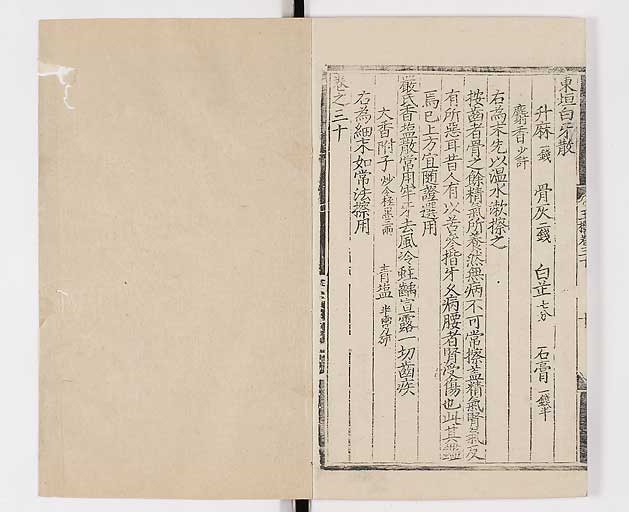 東垣白牙散
升麻一錢 骨灰二錢 白芷七分 石膏一錢半
麝香少許
右為末先以温水漱擦之
按齒者骨之餘精氣所養然無病不可常擦蓋精氣腎氣反
有所惡耳昔人有以苦參揩牙久病腰者腎受傷也此其
焉已上方宜随證選用
嚴氏香塩散常用牢牙去風冷蛀齲宣露一切齒疾
大香附子炒令極黑三兩 青塩半兩另研
右為細末如常法擦用
卷之三十